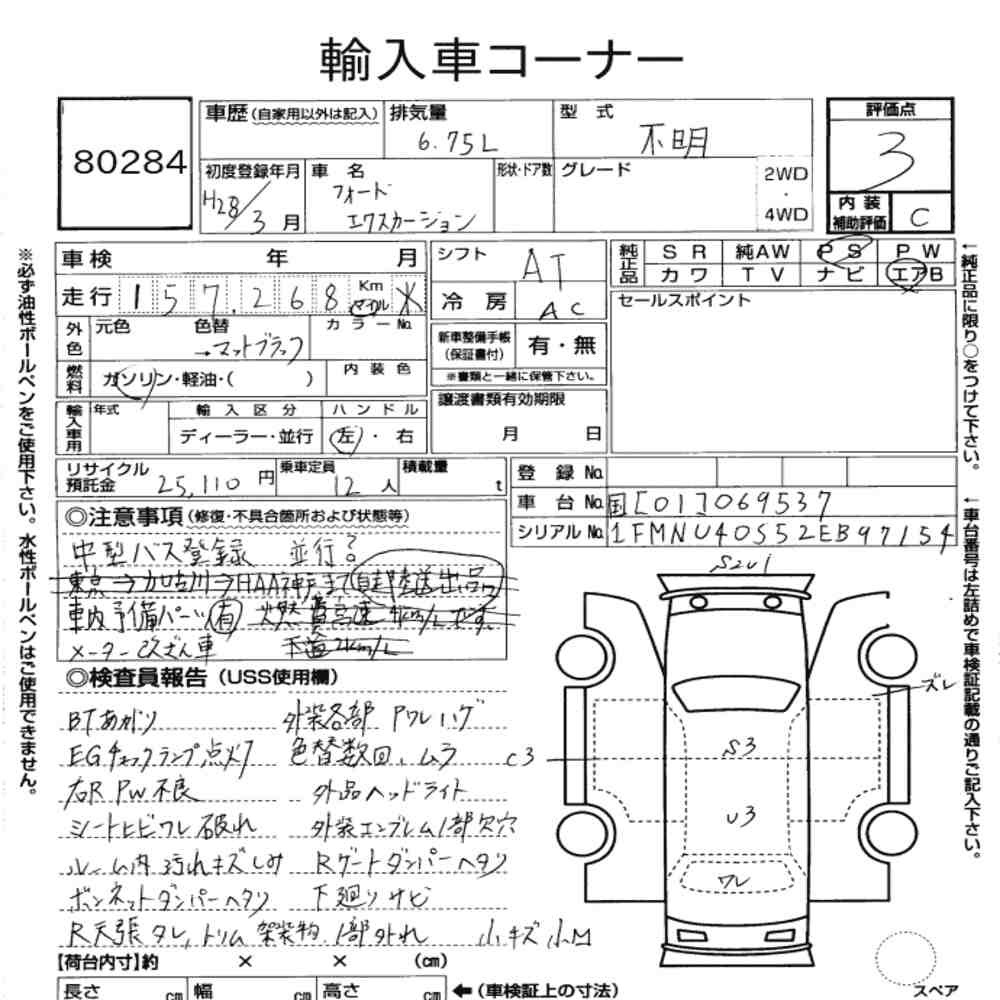 輸入車コーナー
80284
車歴(自家用以外は記入)
排気量
6.75L
型式
不明
評価点
3
初度登録年月
H28/3月
車名
フォード
エクスカーション
形状・ドア数
グレード
2WD
・
4WD
内装
補助評価
C
車検 年 月
走行 157,268 Km マイル ※
外色
元色
色替
→マットブラック
カラーNo.
燃料
ガソリン・軽油・( )
内装色
輸入車用
年式
輸入区分
ディーラー・並行
ハンドル
左・右
シフト
AT
冷房
AC
新車整備手帳
(保証書付)
有・無
※書類と一緒に保管下さい。
譲渡書類有効期限
月 日
純正品
SR 純AW PS PW
カワ TV ナビ エアB
セールスポイント
リサイクル
預託金
25,110円
乗車定員
12人
積載量
t
登録No.
車台No. 国[01]069537
シリアルNo. 1FMNU40S52EB97154
◎注意事項(修復・不具合箇所および状態等)
中型バス登録 並行?
東京→加古川→HAA神戸まで自走陸送出品
車内予備パーツ有 燃費高速4km/Lです。
メーター改ざん車 下道2km/L
◎検査員報告(USS使用欄)
BTあがり 外装各部 Pワレハゲ
EGチェックランプ点灯 色替数回、ムラ
右R PW不良 外品ヘッドライト
シートヒビワレ破れ 外装エンブレム1部欠穴
ルーム内汚れキズしみ Rゲートダンパーヘタリ
ボンネットダンパーヘタリ 下廻りサビ
R天張タレ,トリム架装物1部外れ 小キズ小凹
【荷台内寸】約 × × (cm)
長さ cm 幅 cm 高さ cm ←(車検証上の寸法)
S2U1
ズレ
C3
S3
U3
ワレ
スペア
※必ず油性ボールペンをご使用下さい。水性ボールペンはご使用できません。
←純正品に限り○をつけて下さい。
←車台番号は左詰めで車検証記載の通りご記入下さい。